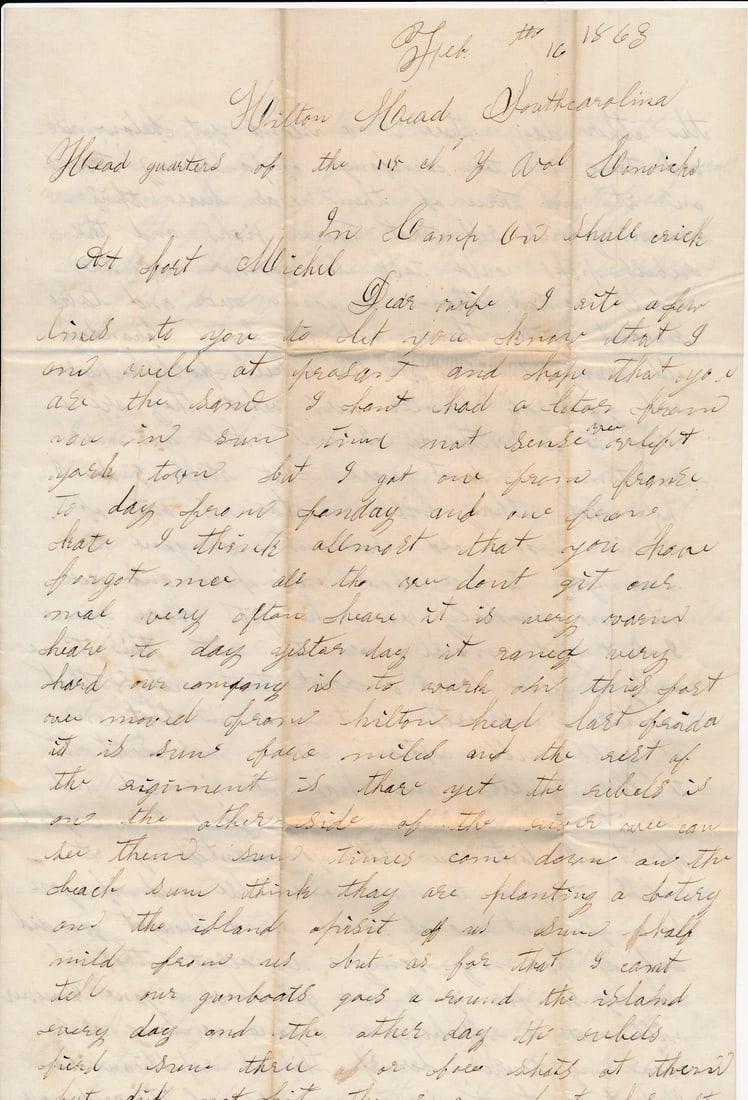 Feb. 16th 1863
Hilton Head Southcarolina
Head quarters of the 115 N Y Vol
In Camp On Skull crick
At fort Michel
Dear wife I rite a few
lines to you to let you know that I
am well at presant and hope that you
are the same I hant had a letor from
you in sum time not sense wee wleft
york town but I got one from
to day from fonday and one from
kate I think allmost that you have
forgot mee all tho wee dont git our
mal very often heare it is very warm
heare to day yester day it raned very
hard our company is to work on this fort
wee moved from hilton head last frida
it is sum fore miles and the rest of
the rigiment is thare yet the rebels is
on the other side of the river wee can
see them sum times come down on the
beach sum think thay are planting a batery
on the island apisit of us sum half
mild from us but as for that I cant
tell our gunboats goes a round the island
every day and the other day the rebels
fierd sum three or foer shots at them
but did not hit